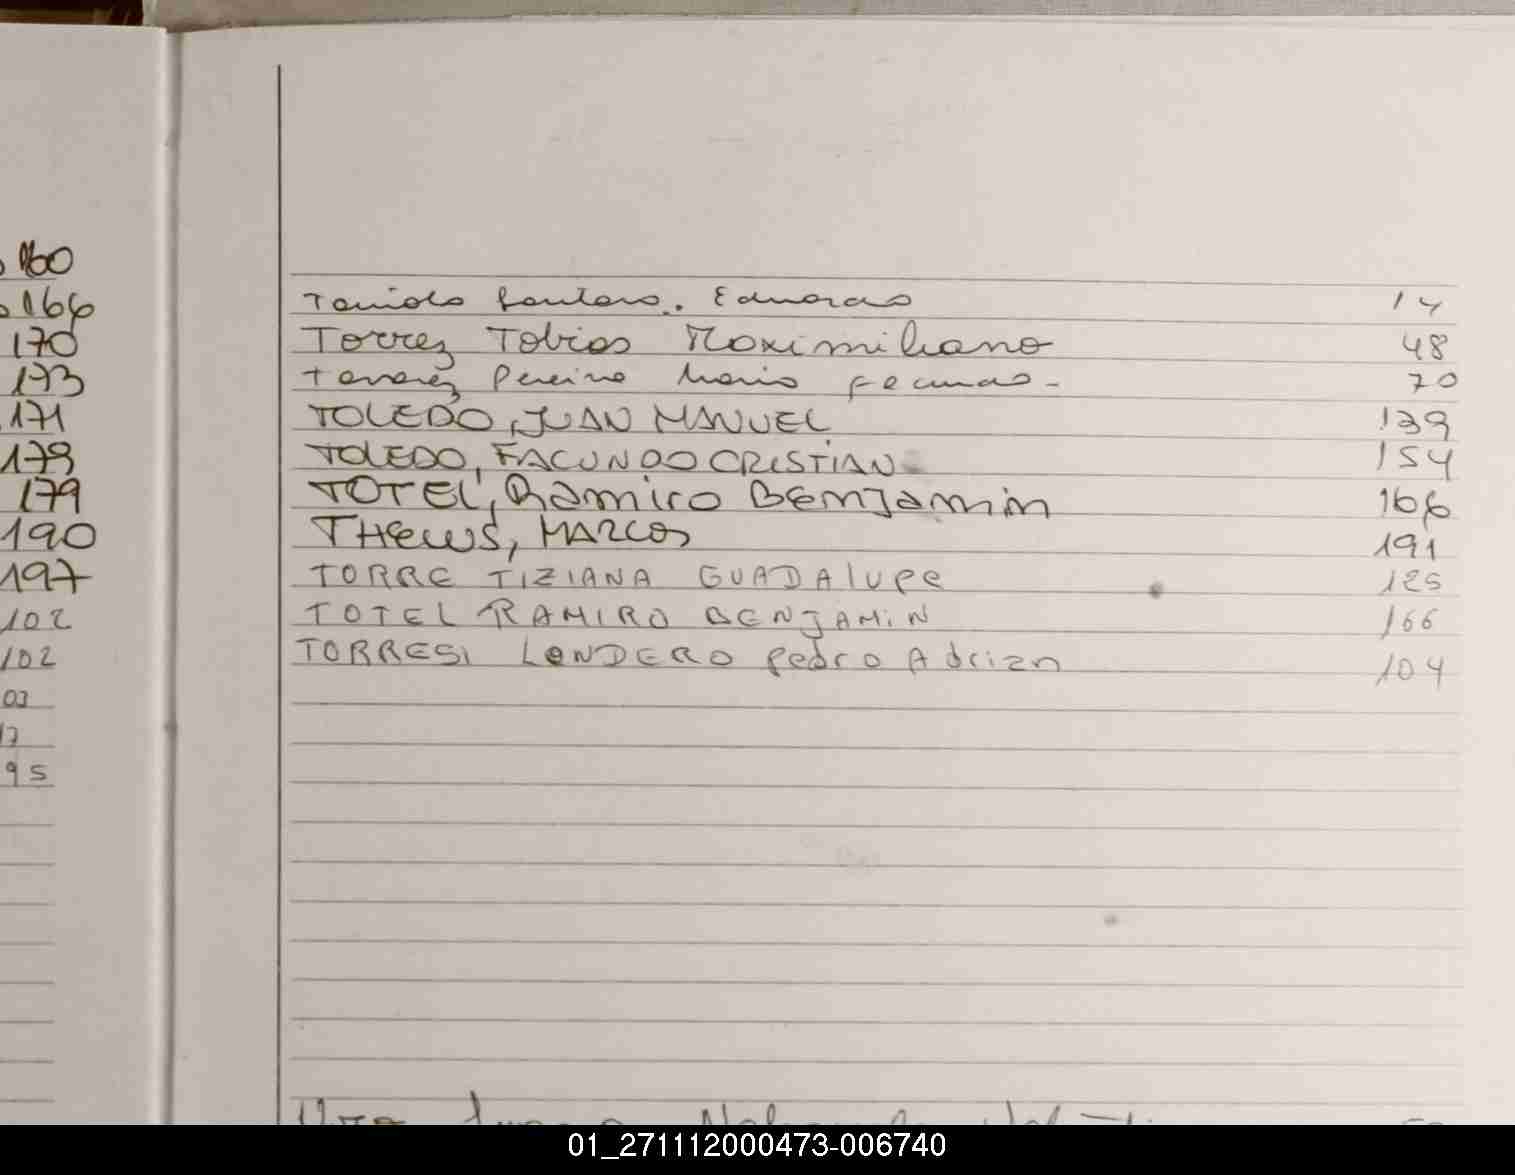 160
166
170
173
171
179
179
190
197
102
102
03
17
95
Eduardo 14
Torrez Tobias Maximiliano 48
Tavarez Pereira Mario Facundo - 70
TOLEDO, JUAN MANUEL 139
TOLEDO, FACUNDO CRISTIAN 154
TOTEL, Ramiro BENJamin 166
THEWS, MARCOS 191
TORRE TIZIANA GUADAlupe 125
TOTEL RAMIRO BENJAMiN 166
TORRESI LONDERO pedro Adrian 104
01_271112000473-006740